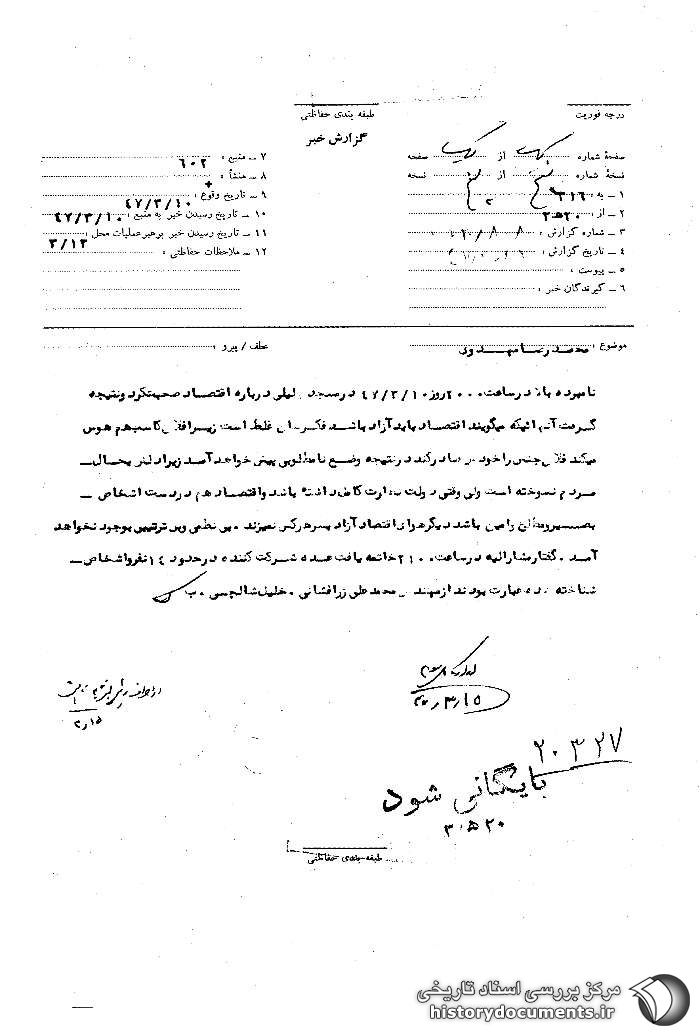 درجه فوریت
طبقه بندی حفاظتی
گزارش خبر
صفحهٔ شماره یک از یک صفحه
نسخهٔ شماره از نسخه
۱ ـ به : ۳۱۶
۲ ـ از : ۲۰ ه ۳
۳ ـ شماره گزارش :
۴ ـ تاریخ گزارش :
۵ ـ پیوست :
۶ ـ گیرندگان خبر :
۷ ـ منبع : ۶۰۲
۸ ـ منشأ :
۹ ـ تاریخ وقوع : ۴۷/۳/۱۰
۱۰ ـ تاریخ رسیدن خبر به منبع : ۴۷/۳/۱۰
۱۱ ـ تاریخ رسیدن خبر برهبر عملیات محل : ۳/۱۳
۱۲ ـ ملاحظات حفاظتی :
موضوع : محمدرضا مهدوی
عطف / پیرو :
نامبرده بالا در ساعت ۲۰۰۰ روز ۴۷/۳/۱۰ در مسجد جلیلی درباره اقتصاد صحبت کرد و نتیجه
گرفت آنهائیکه میگویند اقتصاد باید آزاد باشد فکرشان غلط است زیرا فلان کاسب هم هوس
میکند فلان جنس را خود صادر کند در نتیجه وضع نامطلوبی پیش خواهد آمد زیرا دلش بحال ـ
مردم نسوخته است ولی وقتی دولت نظارت کامل داشته باشد و اقتصاد هم در دست اشخاص ـ
بصیر و مطلع و امین باشد دیگر هوای اقتصاد آزاد بسر هر کس نمیزند . بی نظمی و بی ترتیبی بوجود نخواهد
آمد . گفتار مشارالیه در ساعت ۲۱۰۰ خاتمه یافت عده شرکت کننده در حدود ۱۴ نفر و اشخاص ـ
شناخته شده عبارت بودند از مهندس محمدعلی زرافشانی . خلیل شالچی .
۳/۱۵
۳/۱۵
۲۰۳۲۷
بایگانی شود
۲۰ ه ۳
طبقه بندی حفاظتی
مرکز بررسی اسناد تاریخی
historydocuments.ir